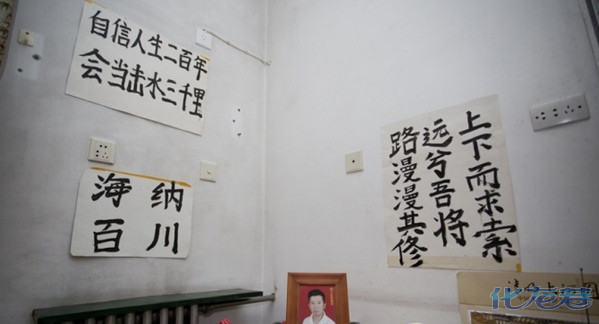 自信人生二百年
会当击水三千里
海纳
百川
路漫漫其修
远兮吾将
上下而求索
化龙巷